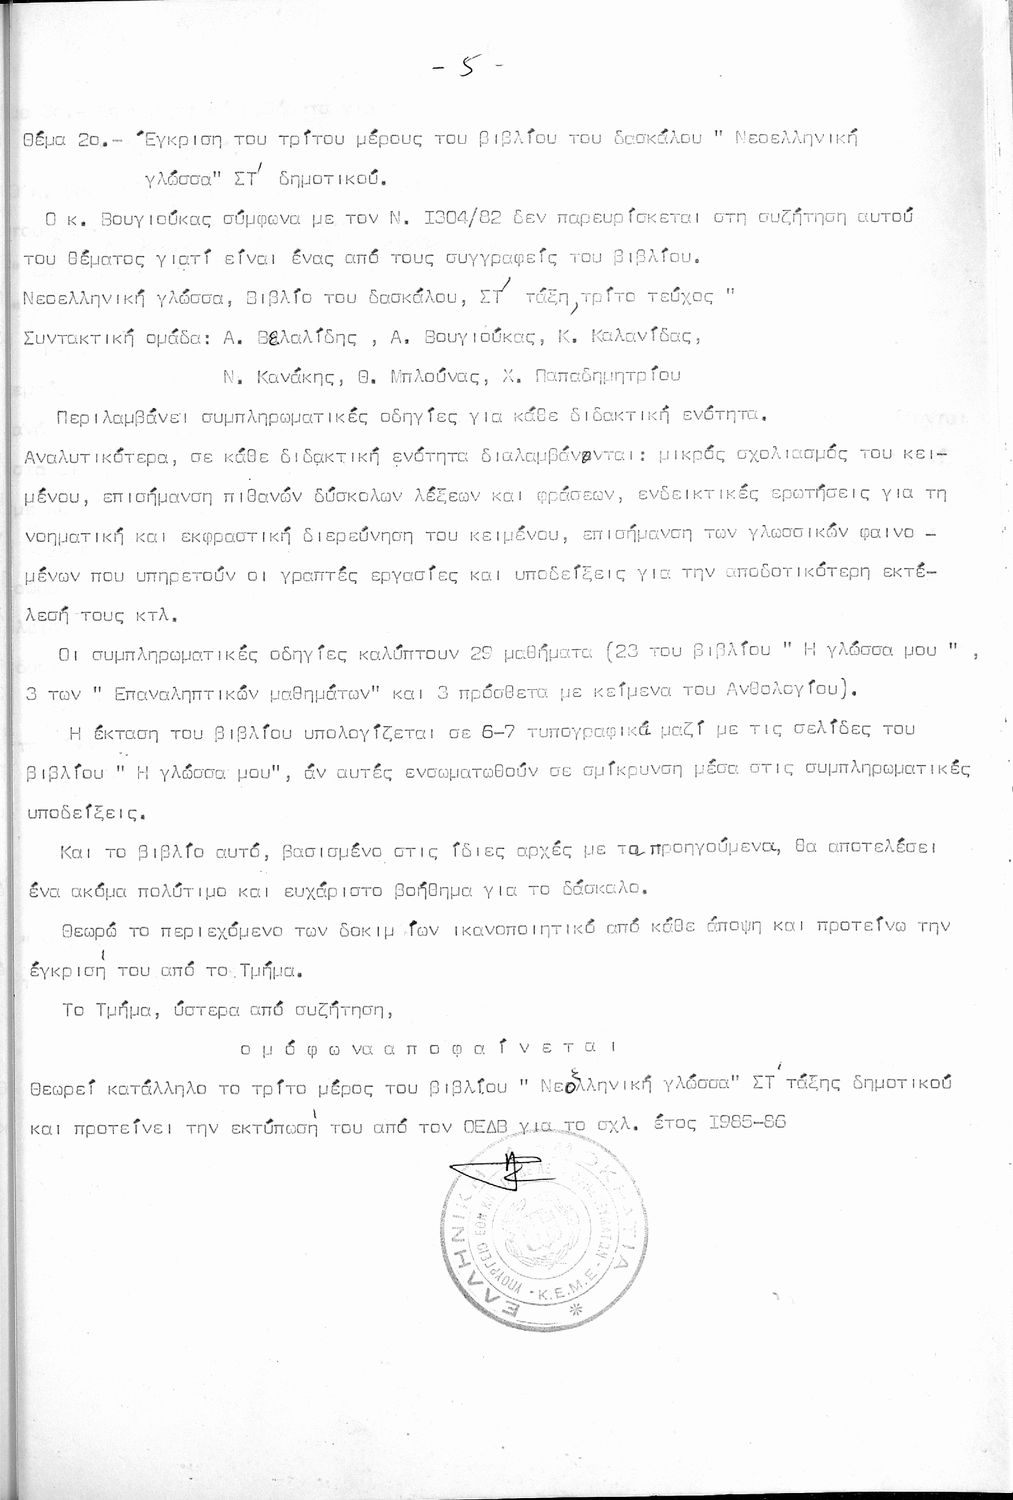 - 5 -
Θέμα 2ο.- Έγκριση του τρίτου μέρους του βιβλίου του δασκάλου " Νεοελληνική
γλώσσα" ΣΤ' δημοτικού.
Ο κ. Βουγιούκας σύμφωνα με τον Ν. Ι304/82 δεν παρευρίσκεται στη συζήτηση αυτού
του θέματος γιατί είναι ένας από τους συγγραφείς του βιβλίου.
Νεοελληνική γλώσσα, Βιβλίο του δασκάλου, ΣΤ' τάξη, τρίτο τεύχος "
Συντακτική ομάδα: Α. Βελαλίδης , Α. Βουγιούκας, Κ. Καλανίδας,
Ν. Κανάκης, Θ. Μπλούνας, Χ. Παπαδημητρίου
Περιλαμβάνει συμπληρωματικές οδηγίες για κάθε διδακτική ενότητα.
Αναλυτικότερα, σε κάθε διδακτική ενότητα διαλαμβάνονται: μικρός σχολιασμός του κει-
μένου, επισήμανση πιθανών δύσκολων λέξεων και φράσεων, ενδεικτικές ερωτήσεις για τη
νοηματική και εκφραστική διερεύνηση του κειμένου, επισήμανση των γλωσσικών φαινο -
μένων που υπηρετούν οι γραπτές εργασίες και υποδείξεις για την αποδοτικότερη εκτέ-
λεσή τους κτλ.
Οι συμπληρωματικές οδηγίες καλύπτουν 29 μαθήματα (23 του βιβλίου " Η γλώσσα μου " ,
3 των " Επαναληπτικών μαθημάτων" και 3 πρόσθετα με κείμενα του Ανθολογίου).
Η έκταση του βιβλίου υπολογίζεται σε 6-7 τυπογραφικά μαζί με τις σελίδες του
βιβλίου " Η γλώσσα μου", άν αυτές ενσωματωθούν σε σμίκρυνση μέσα στις συμπληρωματικές
υποδείξεις.
Και το βιβλίο αυτό, βασισμένο στις ίδιες αρχές με τα προηγούμενα, θα αποτελέσει
ένα ακόμα πολύτιμο και ευχάριστο βοήθημα για το δάσκαλο.
Θεωρώ το περιεχόμενο των δοκιμ ίων ικανοποιητικό από κάθε άποψη και προτείνω την
έγκρισή του από το Τμήμα.
Το Τμήμα, ύστερα από συζήτηση,
ο μ ό φ ω ν α α π ο φ α ί ν ε τ α ι
Θεωρεί κατάλληλο το τρίτο μέρος του βιβλίου " Νεοελληνική γλώσσα" ΣΤ' τάξης δημοτικού
και προτείνει την εκτύπωσή του από τον ΟΕΔΒ για το σχλ. έτος Ι985-86
ΕΛΛΗΝΙΚΗ ΔΗΜΟΚΡΑΤΙΑ
ΥΠΟΥΡΓΕΙΟ ΕΘΝ.
- Κ.Ε.Μ.Ε. -